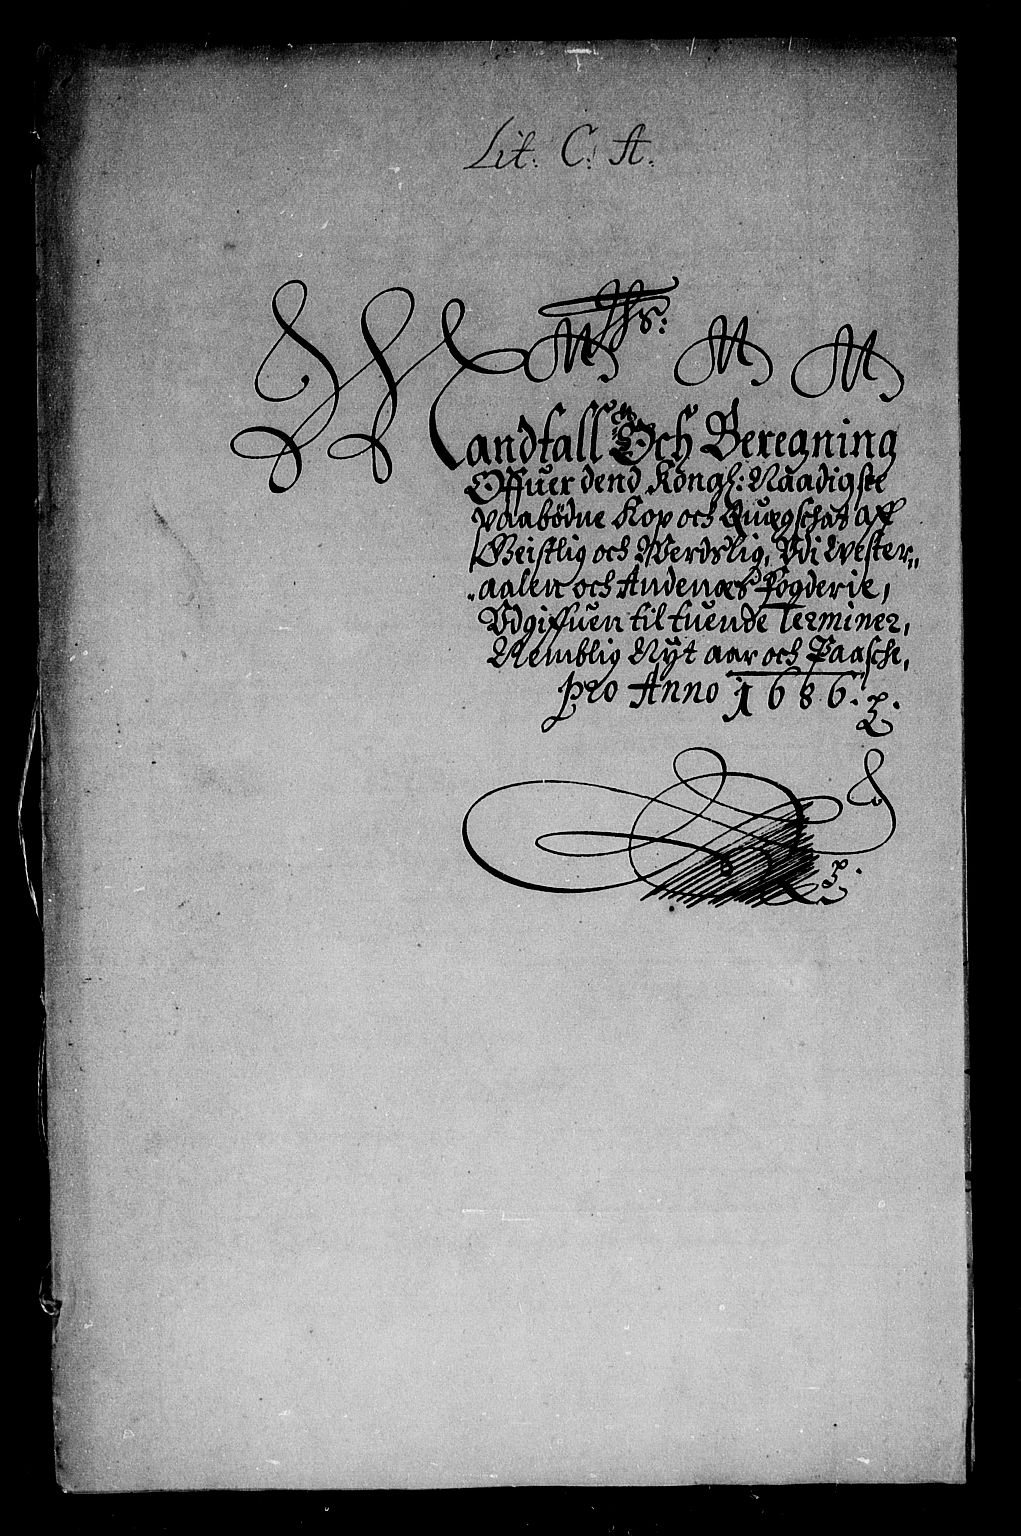 Lit: C: A.
Mandtall Och Beregning
Offuer dend Kongl: Naadigste
paabödne Kop och Quægschat aff
Geistlig och Werdslig, Vdi Wester„
„aalen och Andenæs Fogderie,
Vdgiffuen til tuende Terminer,
Nemblig Nÿt aar och Paasche,
pro Anno 1686.